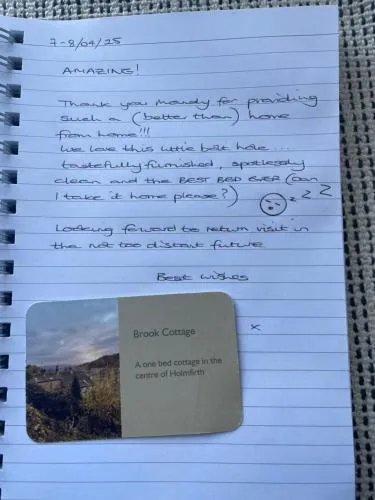 7-8/04/25
AMAZING!
Thank you Mandy for providing
such a (better than) home
from home!!!
We love this little bolt hole...
tastefully furnished, spotlessly
clean and the BEST BED EVER (can
I take it home please?)
z z Z
Looking forward to return visit in
the not too distant future
Best wishes
x
Brook Cottage
A one bed cottage in the
centre of Holmfirth